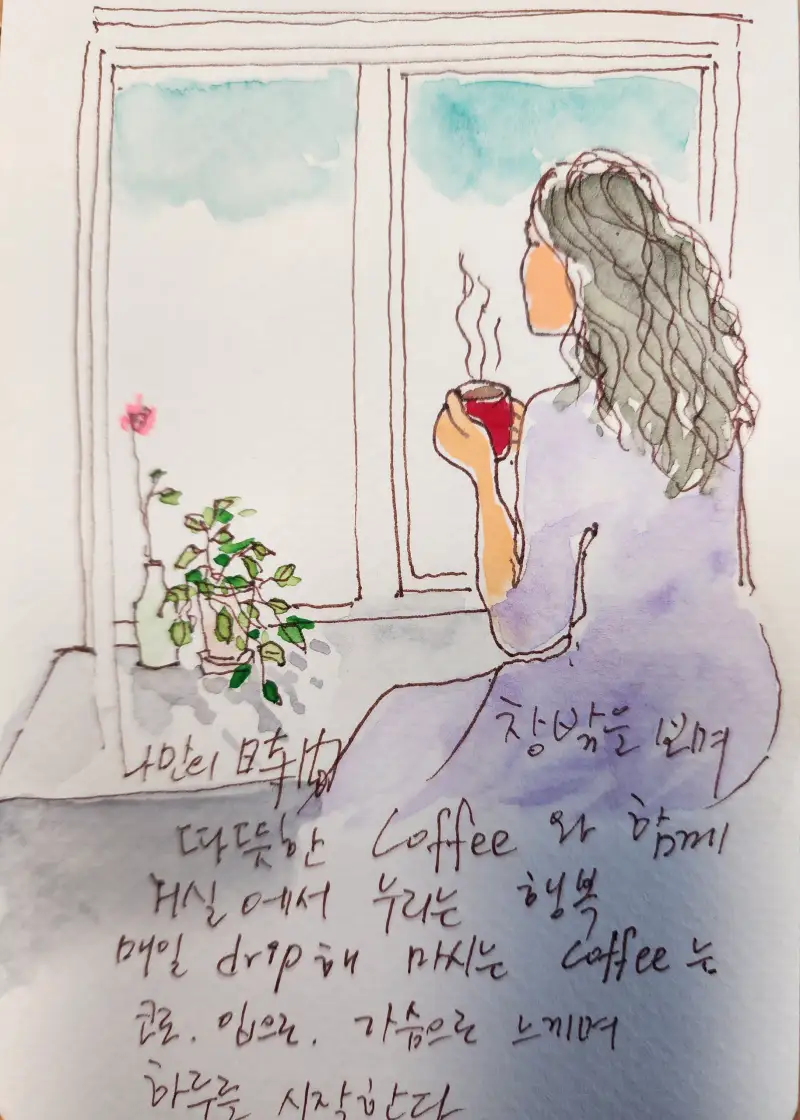 창밖을 보며
나만의 時間
따뜻한 Coffee 와 함께
거실에서 누리는 행복
매일 drip해 마시는 Coffee는
코로. 입으로. 가슴으로 느끼며
하루를 시작한다